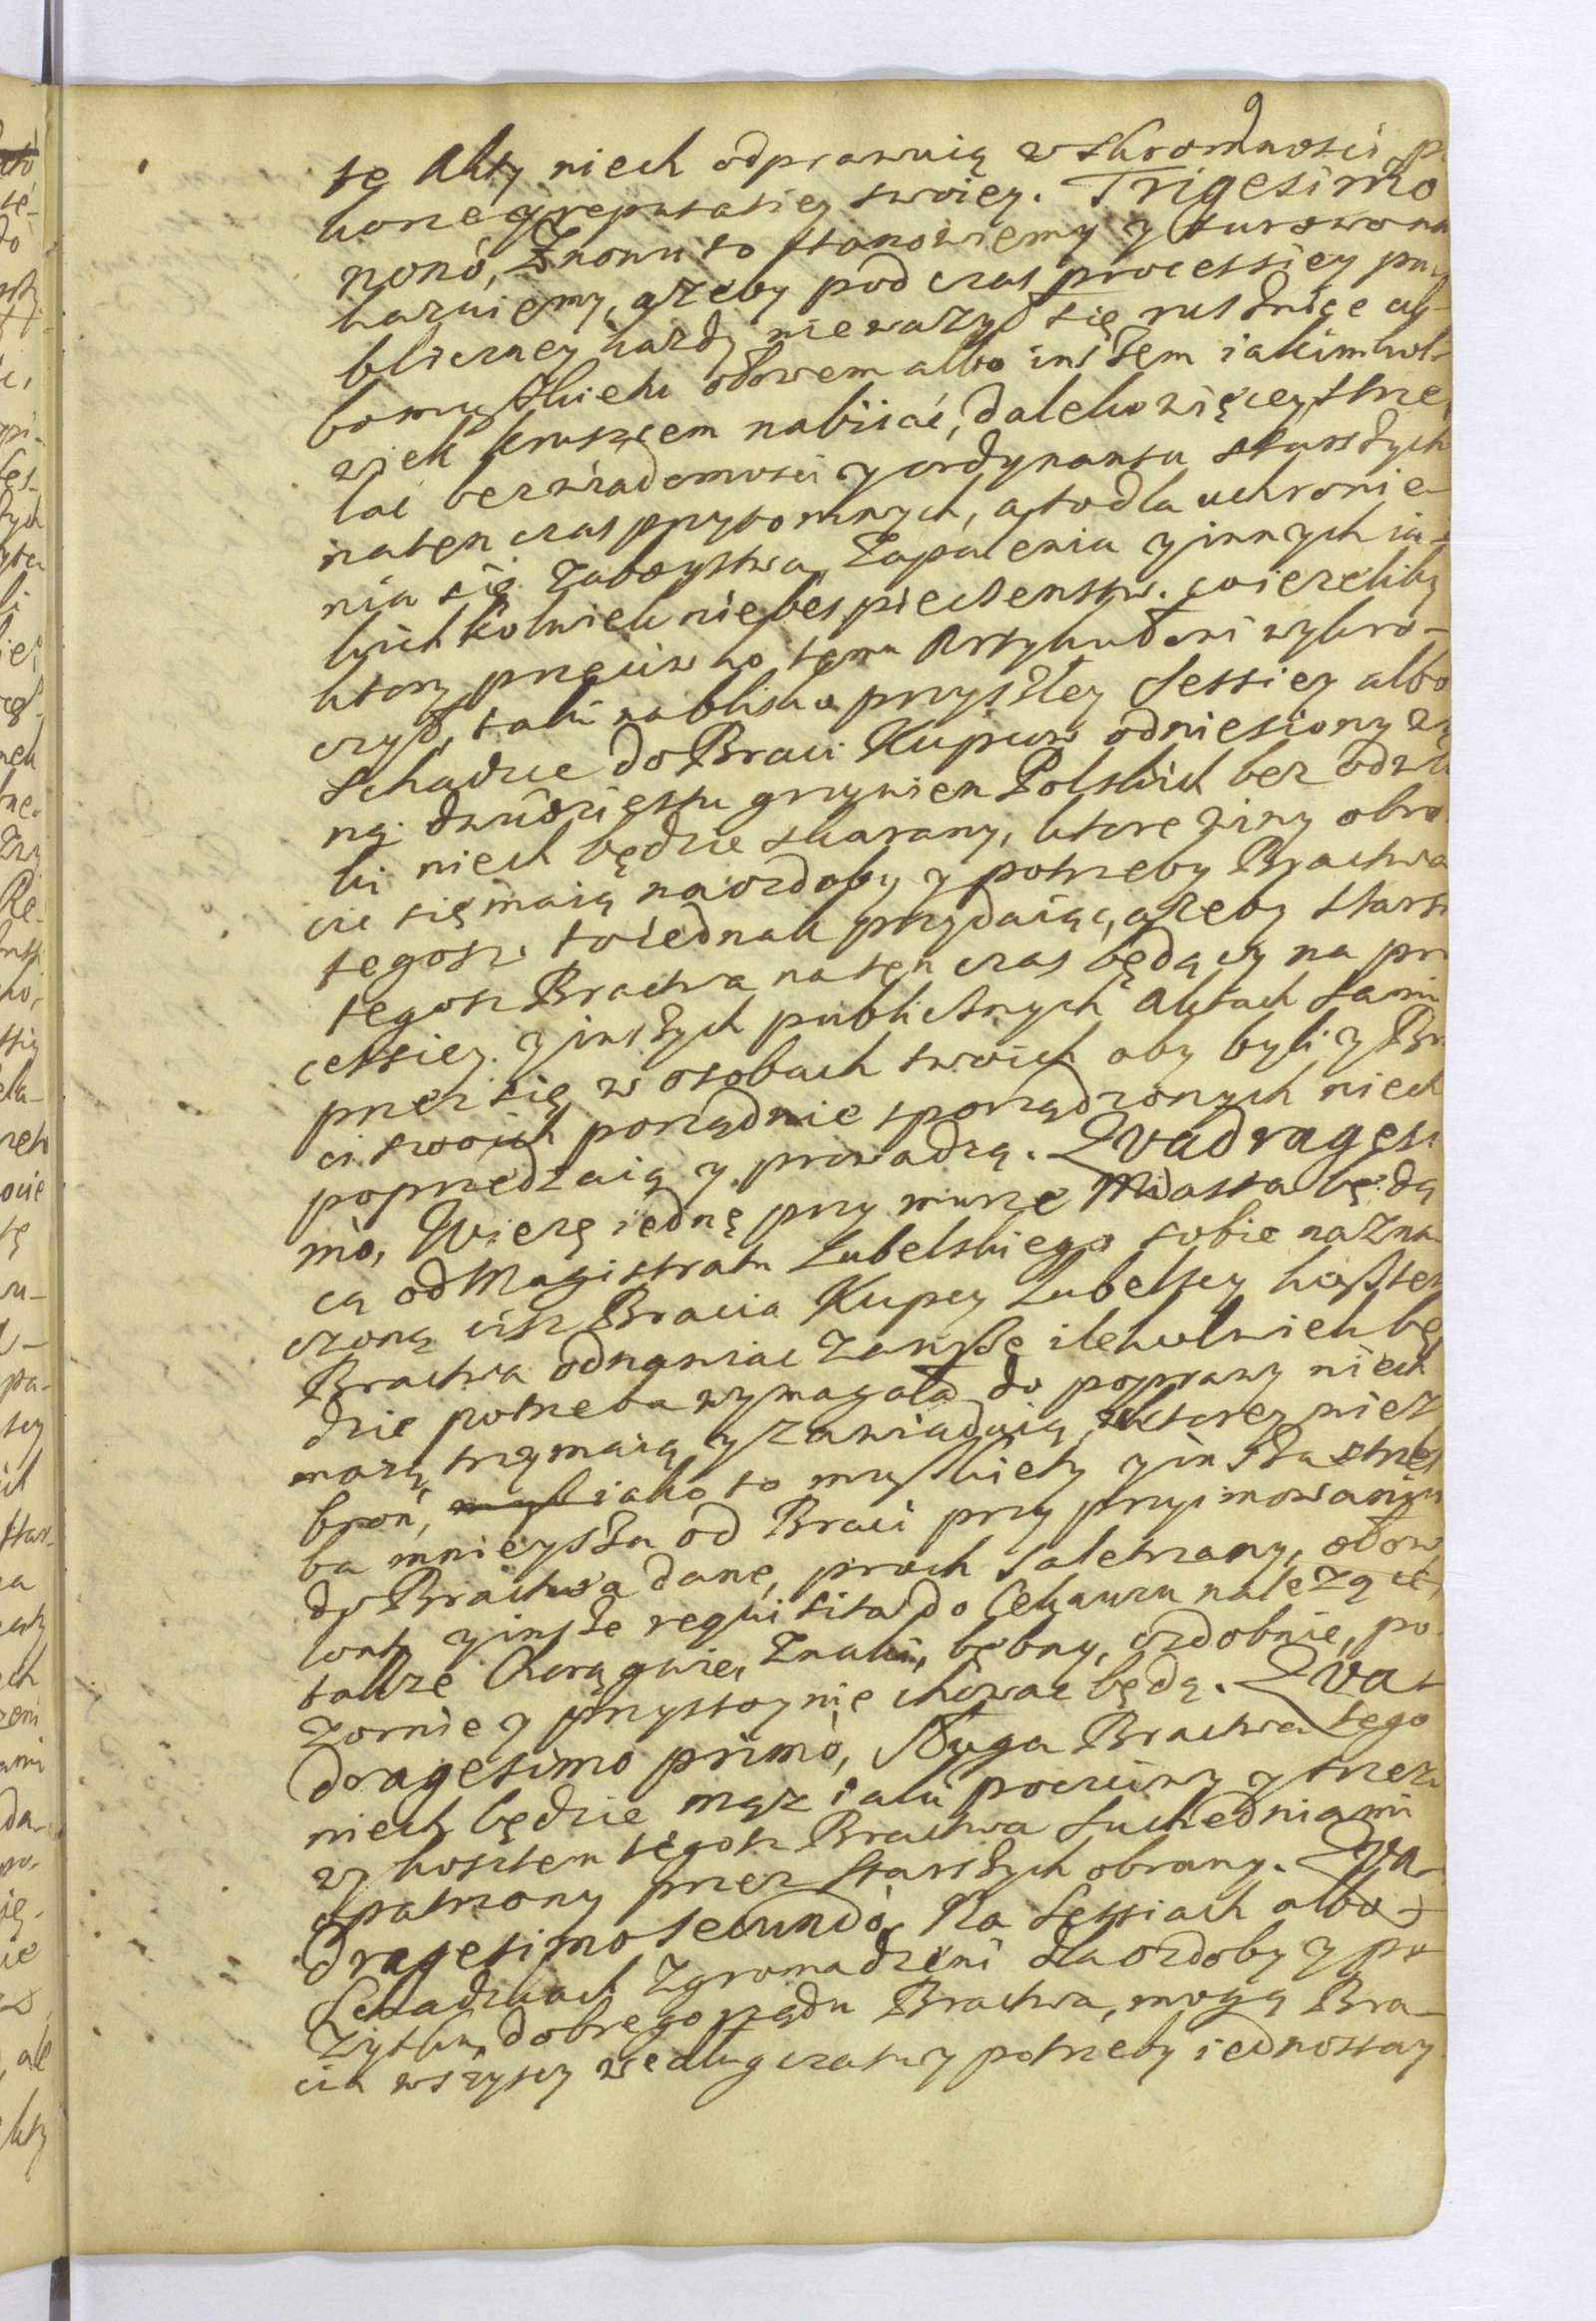 9
te Akty niech odprawuią w skromnosci p
honeg reputatiey swoiey. Trigesimo
nonò, Znowu to stanowiemy y surowo na
kazuiemy, ażeby pod czas processiey pu
bliczney każdy nie ważył się rusznice al-
bo muszkietu ołowem albo inszem iakimkol-
wiek kruszcem nabiiać, daleko więcey strze
lać bez wiadomosci y ordynansu starszych
naten czas przytomnych, a to dla uchronie-
nia się zaboystwa, zapalenia y innych ia-
kichkolwiek niebespieczenstw. coieżeliby
ktory przeciwko temu Artykułowi wykro-
czył, taki na blisko przyszłey Sessiey albo
Schadzce do Braci Kupcow odniesiony wi
ną dwudziestu grzywien Polskich bez odwło
ki niech będzie skarany, ktore winy obro
cić się maią na ozdoby y potrzeby Bractwa
tegosz. to iednak przydaiąc, ażeby starsi
tegosz Bractwa na ten czas będący na pro
cessiey y inszych publicznych aktach sami
przez się w osobach swoich aby byli y Bra
ci swoich porządnie sporządzonych niech
poprzedzaią y prowadzą. Quadragesi
mò, Wieżę iednę przy murze Miasta będą
cą od Magistratu Lubelskiego sobie nazna
czoną cisz Bracia Kupcy Lubelscy kosztem
Bractwa odnawiac zawsze ilekolwiek bę
dzie potrzeba wymagała do poprawy niech
maią, trzymaią y zawiaduią, w ktorey niech
broń, iako to muszkiety y insza strzel
ba mnieysza od Braci przy przyimowaniu
do Bractwa dane, proch saletrzany, ołow,
lonty y insze requisita do Cekauzu należące,
także Chorągwie, Znaki, bębny, ozdobnie, po
zornie y przystoynie chować będą. Qua
dragesimo primò, Sługa Bractwa tego
niech będzie mąż iaki poczciwy y trzeź
wy kosztem tegosz Bractwa suchedniami
opatrzony przez starszych obrany. Qua
dragesimo secundò, Na Sessiach albo
Schadzkach zgromadzeni dla ozdoby y po
żytku dobrego rządu Bractwa, mogą Bra-
cia wszyscy według czasu y potrzeby iednostay